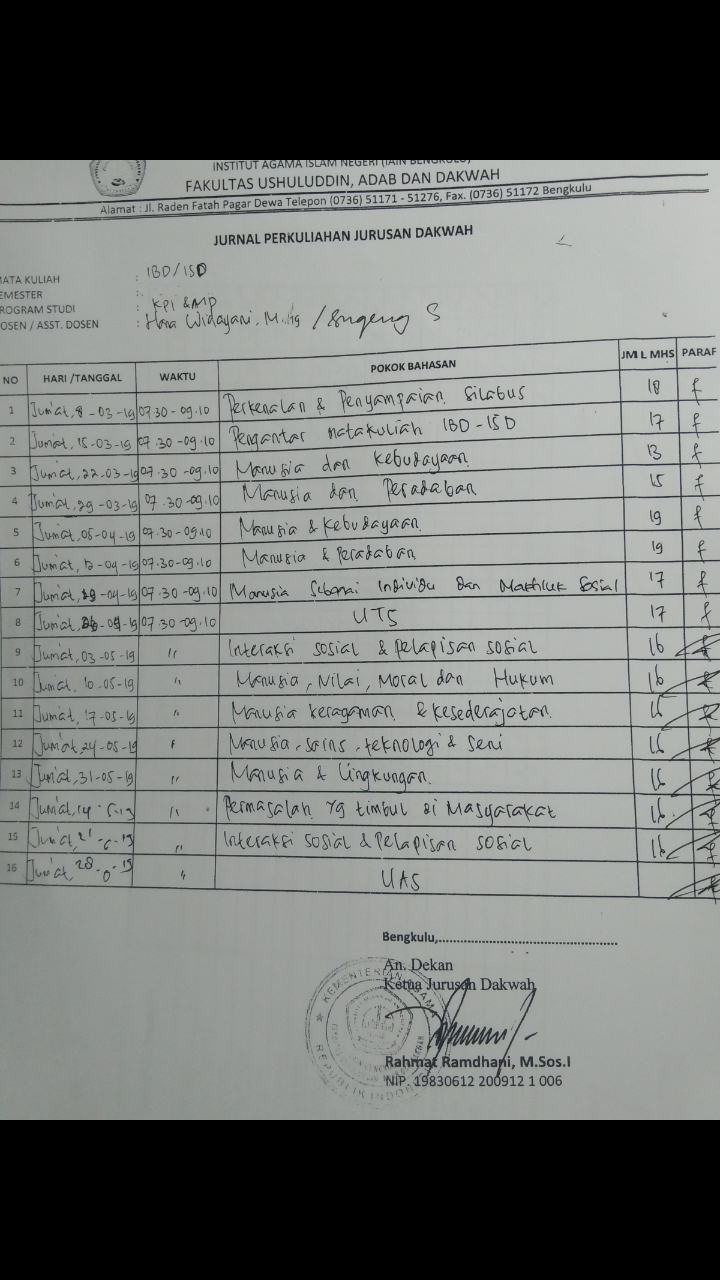 INSTITUT AGAMA ISLAM NEGERI (IAIN BENGKULU)
FAKULTAS USHULUDDIN, ADAB DAN DAKWAH
Alamat : Jl. Raden Fatah Pagar Dewa Telepon (0736) 51171 - 51276, Fax. (0736) 51172 Bengkulu
JURNAL PERKULIAHAN JURUSAN DAKWAH
MATA KULIAH : IBD/ISD
SEMESTER :
PROGRAM STUDI : KPI & MP
DOSEN / ASST. DOSEN : Hera Widayani, M. / Sugeng S
NO HARI /TANGGAL WAKTU POKOK BAHASAN JML MHS PARAF
1 Jum'at, 8-03-19 07.30-09.10 Perkenalan & Penyampaian Silabus 18
2 Jum'at, 15-03-19 07.30-09.10 Pengantar matakuliah IBD-ISD 17
3 Jum'at, 22-03-19 07.30-09.10 Manusia dan Kebudayaan 13
4 Jum'at, 29-03-19 07.30-09.10 Manusia dan Peradaban 15
5 Jum'at, 05-04-19 07.30-09.10 Manusia & Kebudayaan 19
6 Jum'at, 12-04-19 07.30-09.10 Manusia & Peradaban 19
7 Jum'at, 19-04-19 07.30-09.10 Manusia Sebagai Individu dan Makhluk Sosial 17
8 Jum'at, 26-04-19 07.30-09.10 UTS 17
9 Jum'at, 03-05-19 " Interaksi sosial & pelapisan sosial 16
10 Jum'at, 10-05-19 " Manusia, Nilai, Moral dan Hukum 16
11 Jum'at, 17-05-19 " Manusia keragaman & kesederajatan 16
12 Jum'at, 24-05-19 " Manusia, sains, teknologi & seni 16
13 Jum'at, 31-05-19 " Manusia & Lingkungan 16
14 Jum'at, 14-6-19 " Permasalah yg timbul di Masyarakat 16
15 Jum'at, 21-6-19 " Interaksi sosial & pelapisan sosial 16
16 Jum'at, 28-6-19 " UAS
Bengkulu,..........................................
An. Dekan
Ketua Jurusan Dakwah
KEMENTERIAN AGAMA
REPUBLIK INDONESIA
Rahmat Ramdhani, M.Sos.I
NIP. 19830612 200912 1 006